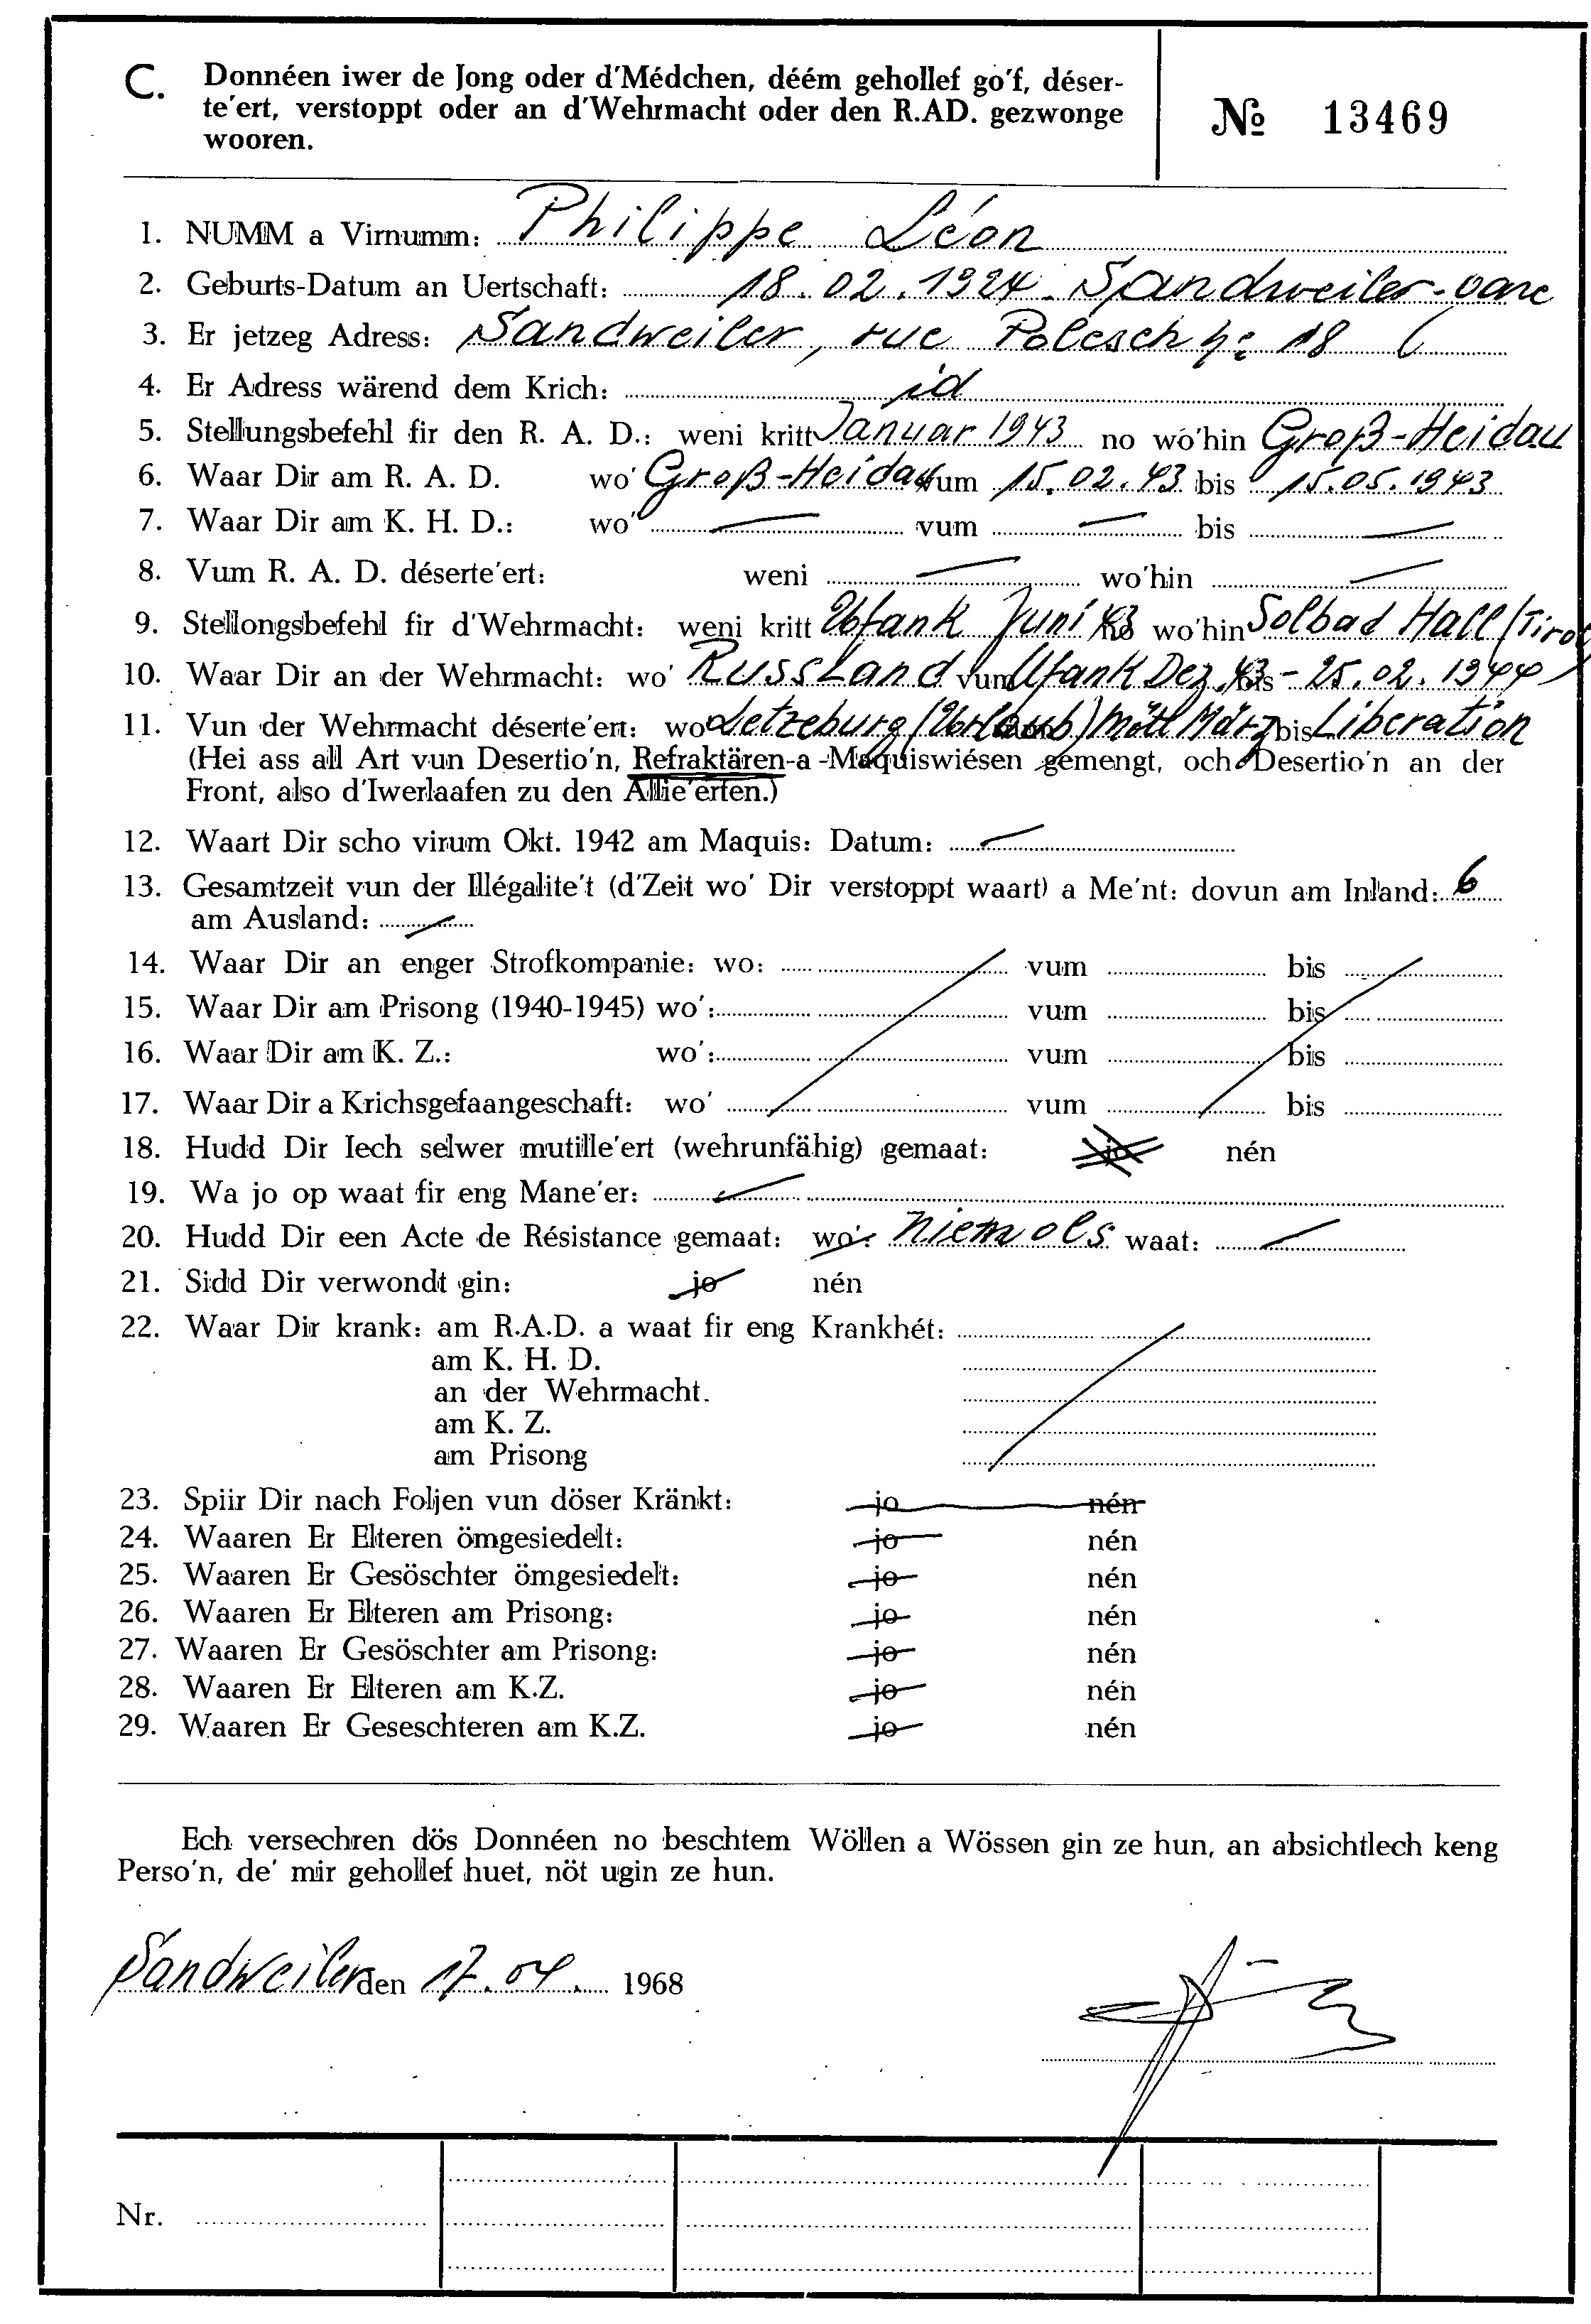 C. Donnéen iwer de Jong oder d'Médchen, déém gehollef go'f, déser-
te'ert, verstoppt oder an d'Wehrmacht oder den R.AD. gezwonge
wooren.
№ 13469
1. NUMM a Virnumm: Philippe Léon
2. Geburts-Datum an Uertschaft: 18.02.1924. Sandweiler-
3. Er jetzeg Adress: Sandweiler, rue 18
4. Er Adress wärend dem Krich: id
5. Stellungsbefehl fir den R. A. D.: weni kritt Januar 1943 no wo'hin Groß-Heidau
6. Waar Dir am R. A. D. wo' Groß-Heidau vum 15.02.43 bis 15.05.1943
7. Waar Dir am K. H. D.: wo' — vum — bis —
8. Vum R. A. D. déserte'ert: weni — wo'hin —
9. Stellongsbefehl fir d'Wehrmacht: weni kritt Ufank Juni 43 no wo'hin Solbad Hall (Tirol)
10. Waar Dir an der Wehrmacht: wo' Russland vum Ufank Dez. 43 bis - 25.02.1944
11. Vun der Wehrmacht déserte'ert: wo Letzeburg (Urlaub) Mëtt März bis Liberation
(Hei ass all Art vun Desertio'n, Refraktären-a -Maquiswiésen gemengt, och Desertio'n an der
Front, also d'Iwerlaafen zu den Allie'erten.)
12. Waart Dir scho virum Okt. 1942 am Maquis: Datum: —
13. Gesamtzeit vun der Illégalite't (d'Zeit wo' Dir verstoppt waart) a Me'nt: dovun am Inland: 6
am Ausland: —
14. Waar Dir an enger Strofkompanie: wo: vum bis
15. Waar Dir am Prisong (1940-1945) wo': vum bis
16. Waar Dir am K. Z.: wo': vum bis
17. Waar Dir a Krichsgefaangeschaft: wo' vum bis
18. Hudd Dir Iech selwer mutille'ert (wehrunfähig) gemaat: jo nén
19. Wa jo op waat fir eng Mane'er: —
20. Hudd Dir een Acte de Résistance gemaat: wo': niemols waat: —
21. Sidd Dir verwondt gin: jo nén
22. Waar Dir krank: am R.A.D. a waat fir eng Krankhét:
am K. H. D.
an der Wehrmacht.
am K. Z.
am Prisong
23. Spiir Dir nach Foljen vun döser Kränkt: jo nén
24. Waaren Er Elteren ömgesiedelt: jo nén
25. Waaren Er Gesöschter ömgesiedelt: jo nén
26. Waaren Er Elteren am Prisong: jo nén
27. Waaren Er Gesöschter am Prisong: jo nén
28. Waaren Er Elteren am K.Z. jo nén
29. Waaren Er Geseschteren am K.Z. jo nén
Ech versechren dös Donnéen no beschtem Wöllen a Wössen gin ze hun, an absichtlech keng
Perso'n, de' mir gehollef huet, nöt ugin ze hun.
Sandweiler den 17.04. 1968
Nr.